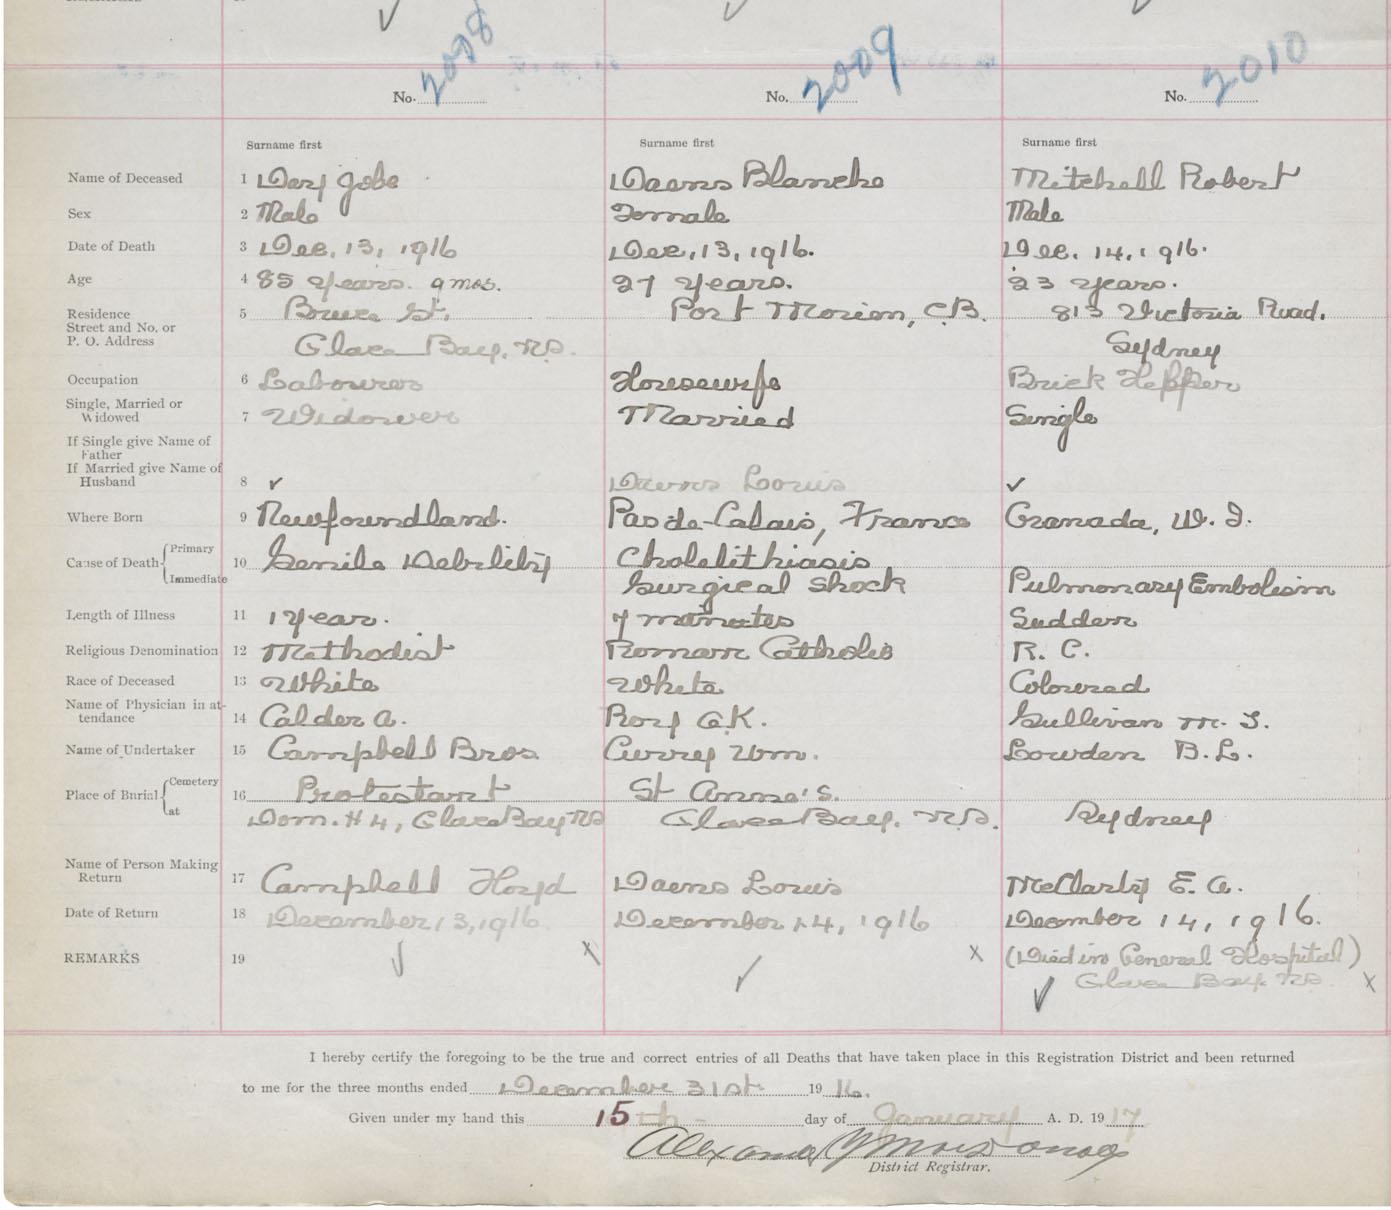 No. 2008 No. 2009 No. 2010
Surname first Surname first Surname first
Name of Deceased 1 Dey Jobe Daens Blanche Mitchell Robert
Sex 2 Male Female Male
Date of Death 3 Dec, 13, 1916 Dec, 13, 1916. Dec. 14, 1916.
Age 4 85 years. 9 mos. 27 years. 23 years.
Residence 5 Bruce St. Port Morien, C.B. 813 Victoria Road,
Street and No. or
P. O. Address Glace Bay, N.S. Sydney
Occupation 6 Labourer Housewife Brick Helper
Single, Married or
Widowed 7 Widower Married Single
If Single give Name of
Father
If Married give Name of
Husband 8 ✓ Daens Louis ✓
Where Born 9 Newfoundland. Pas de-Calais, France Granada, W. I.
Cause of Death { Primary 10 Senile Debility Cholelithiasis
Immediate Surgical Shock Pulmonary Embolism
Length of Illness 11 1 Year. 7 minutes Sudden
Religious Denomination 12 Methodist Roman Catholic R. C.
Race of Deceased 13 White White Colourad
Name of Physician in at-
tendance 14 Calder A. Roy G.K. Sullivan M. T.
Name of Undertaker 15 Campbell Bros. Currey Wm. Lowden B. L.
Place of Burial { Cemetery 16 Protestant St Anne's.
at Dom. # 4, Glace Bay NS Glace Bay, N.S. Sydney
Name of Person Making
Return 17 Campbell Floyd Daens Louis McClarty E. A.
Date of Return 18 December 13, 1916 December 14, 1916 December 14, 1916.
REMARKS 19 ✓ x ✓ x (Died in General Hospital)
Glace Bay NS ✓ x
I hereby certify the foregoing to be the true and correct entries of all Deaths that have taken place in this Registration District and been returned
to me for the three months ended December 31st 1916.
Given under my hand this 15th day of January A. D. 1917
Alexander MacDonald
District Registrar.